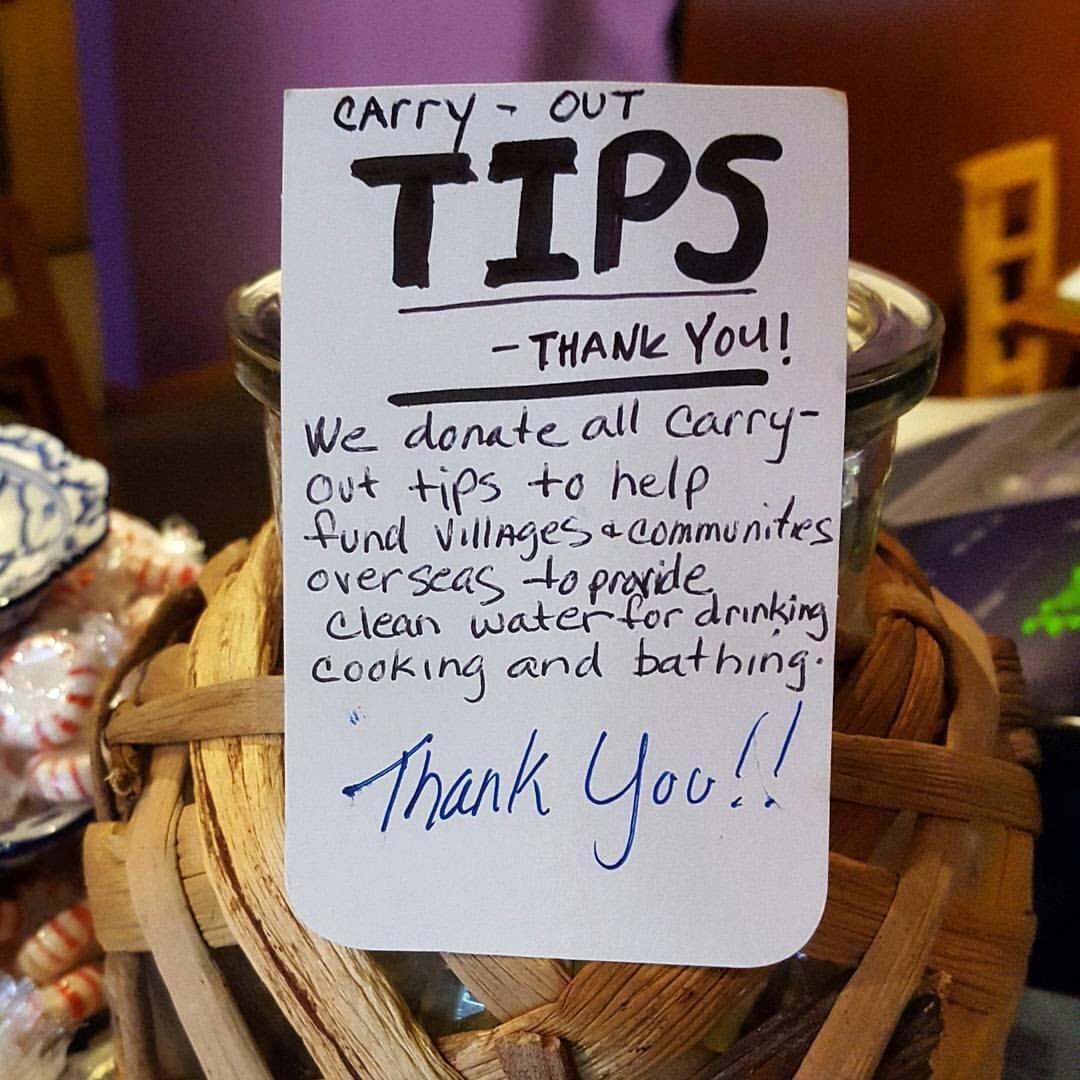 CArry - OUT
TIPS
- THANK YOU!
We donate all carry-
out tips to help
fund villAges & communities
overseas to provide
clean water for drinking
cooking and bathing.
Thank You!!